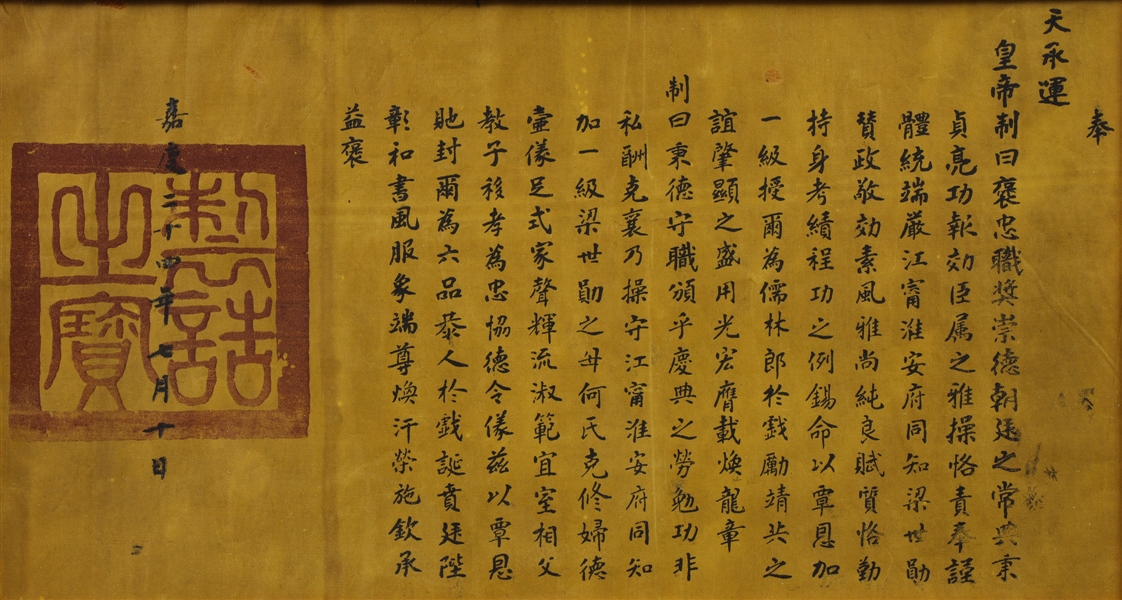 奉
天承運
皇帝制曰褒忠職奬崇德朝廷之常典秉
貞亮功報効臣属之雅操恪責奉謹
體統端嚴江甯淮安府同知梁世勛
贊政敬効素風雅尚純良賦質恪勤
持身考績程功之例錫命以覃恩加
一級授爾為儒林郎於戲勵靖共之
誼肇顯之盛用光宏膺載煥龍章
制曰秉德守職頒乎慶典之勞勉功非
私酬克襄乃操守江甯淮安府同知
加一級梁世勛之母何氏克修婦德
壷儀足式家聲輝流淑範宜室相父
教子移孝為忠協德令儀兹以覃恩
貤封爾為六品恭人於戲誕賁廷陛
彰和書風服象端尊煥汗榮施欽承
益褒
嘉慶二十四年七月十日
制誥之寶